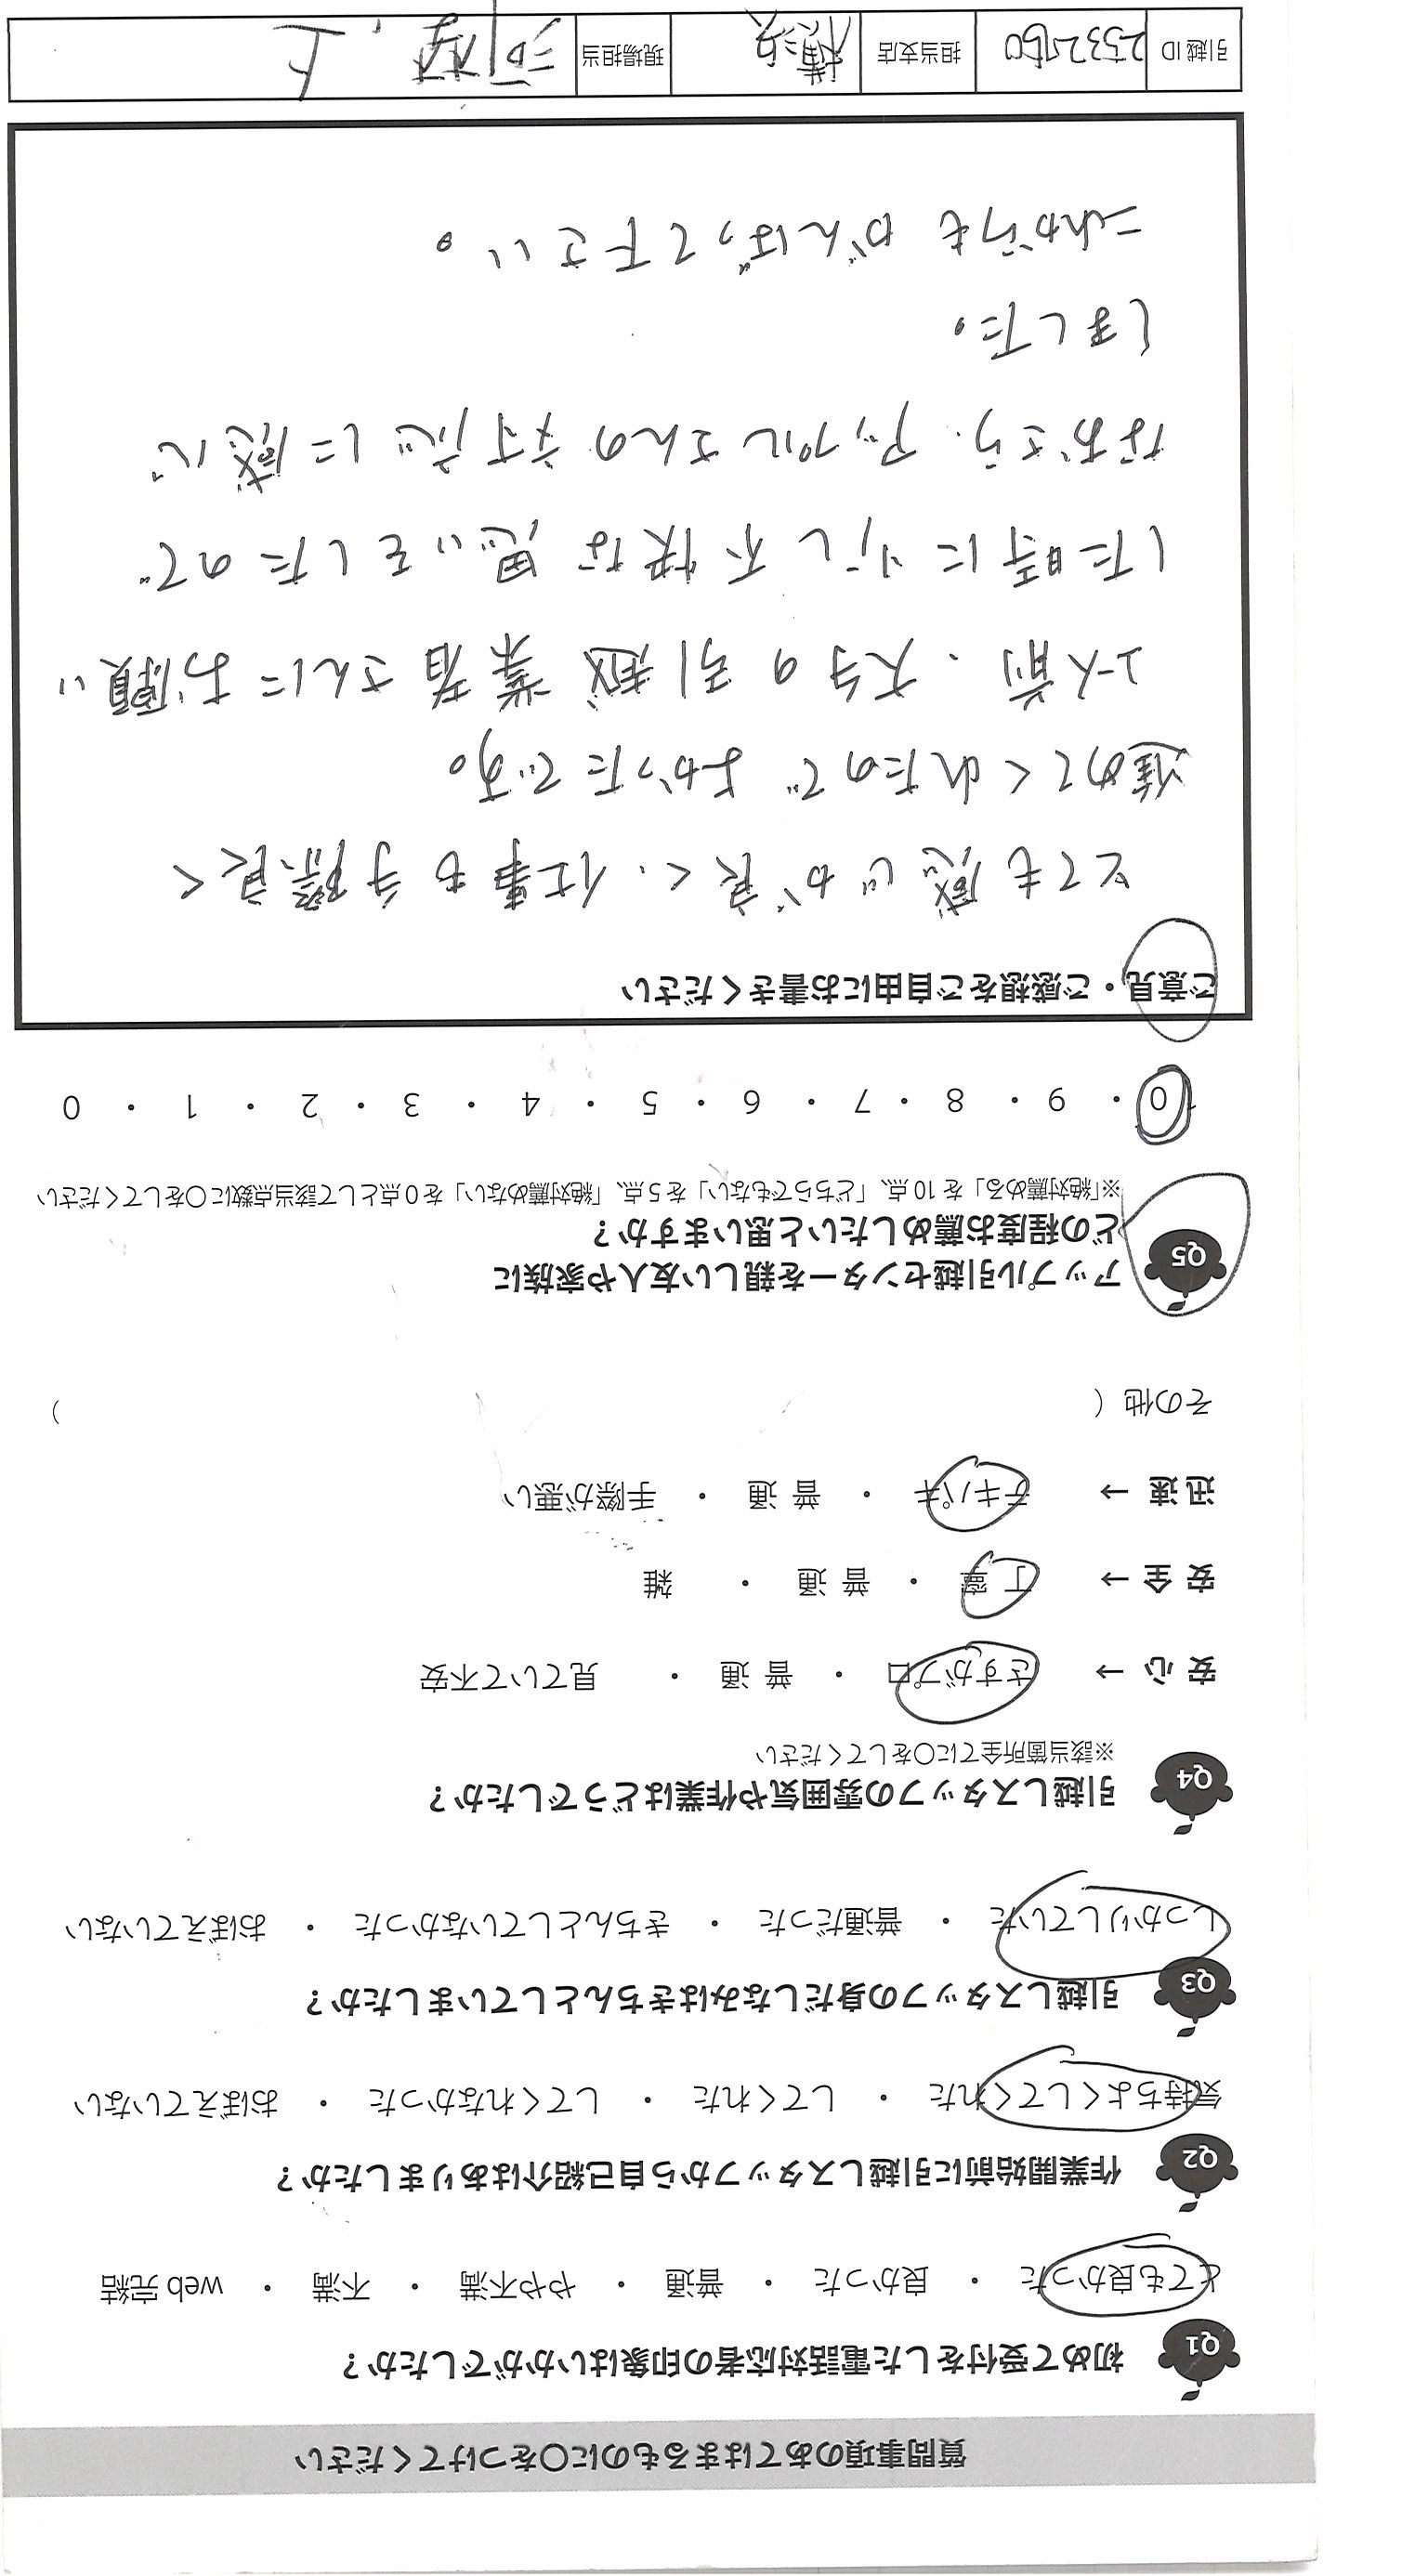 質問事項のあてはまるものに〇をつけてください
Q1 初めて受付をした電話対応者の印象はいかがでしたか？
とても良かった ・ 良かった ・ 普通 ・ やや不満 ・ 不満 ・ web 完結
Q2 作業開始前に引越しスタッフから自己紹介はありましたか？
気持ちよくしてくれた ・ してくれた ・ してくれなかった ・ おぼえていない
Q3 引越しスタッフの身だしなみはきちんとしていましたか？
しっかりしていた ・ 普通だった ・ きちんとしていなかった ・ おぼえていない
Q4 引越しスタッフの雰囲気や作業はどうでしたか？
※該当箇所全てに〇をしてください
安 心 → さすがプロ ・ 普 通 ・ 見ていて不安
安 全 → 丁 寧 ・ 普 通 ・ 雑
迅 速 → テキパキ ・ 普 通 ・ 手際が悪い
その他（ ）
Q5 アップル引越センターを親しい友人や家族に
どの程度お薦めしたいと思いますか？
※「絶対薦める」を 10 点、「どちらでもない」を 5 点、「絶対薦めない」を 0 点として該当点数に〇をしてください
10 ・ 9 ・ 8 ・ 7 ・ 6 ・ 5 ・ 4 ・ 3 ・ 2 ・ 1 ・ 0
ご意見・ご感想をご自由にお書きください
とても感じが良く、仕事も手際良く
進めてくれたので よかったです。
以前、大手の引越業者さんにお願い
した時に少し不快な思いをしたので
なおさら、アップルさんの対応に感心
しました。
これからも がんばって下さい。
引越 ID 2532760 担当支店 横浜 現場担当 河村、上